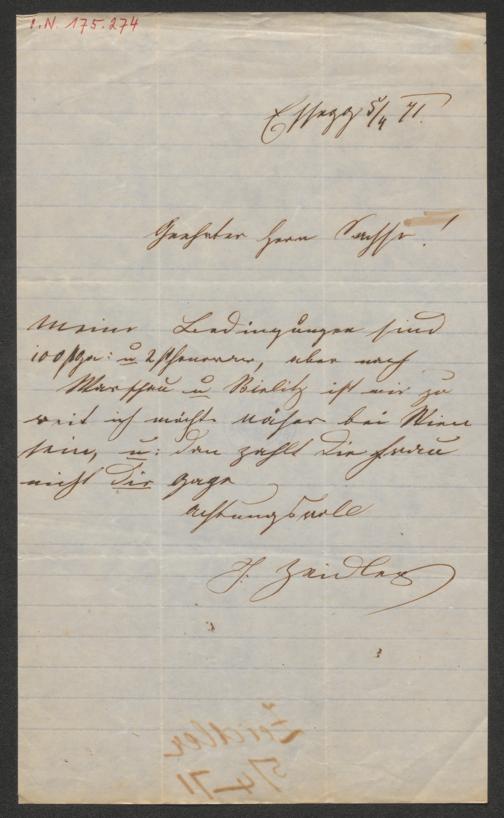 I.N. 175.274
Essegg 5/4 71.
Geehrter Herr Sachse!
Meine Bedingungen sind
100 fl Ga: u 2 fl honorar, aber nach
Warschau u Bielitz ist mir zu
weit ich möchte näher bei Wien
sein, u: dan zahlt die Frau
nicht die Gage
Achtungsvoll
J. Zeidler
Zeidler
5/4 71